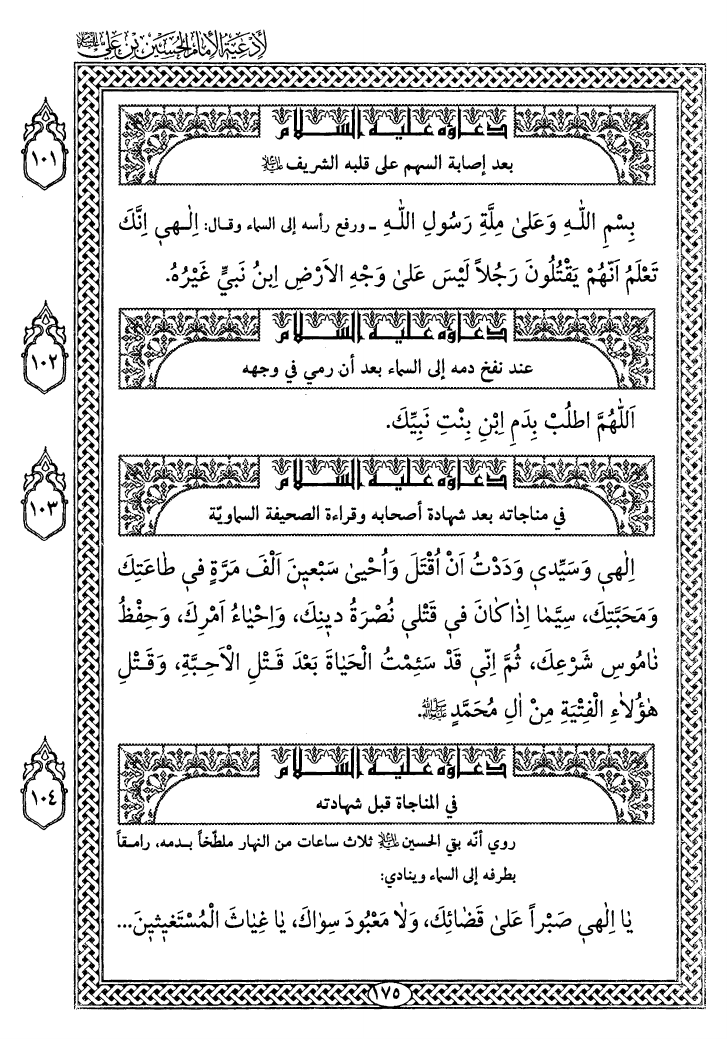 لأدعية الإمام الحسين بن علي عليه السلام
١٠١
دعاؤه عليه السلام
بعد إصابة السهم على قلبه الشريف عليه السلام
بِسْمِ اللّٰـهِ وَعَلىٰ مِلَّةِ رَسُولِ اللّٰـهِ ـ ورفع رأسه إلى السماء وقال: اِلـٰهي اِنَّكَ
تَعْلَمُ اَنَّهُمْ يَقْتُلُونَ رَجُلاً لَيْسَ عَلىٰ وَجْهِ الاَرْضِ اِبنُ نَبيٍّ غَيْرُهُ.
١٠٢
دعاؤه عليه السلام
عند نفخ دمه إلى السماء بعد أن رمي في وجهه
اَللّٰهُمَّ اطلُبْ بِدَمِ اِبْنِ بِنْتِ نَبِيِّكَ.
١٠٣
دعاؤه عليه السلام
في مناجاته بعد شهادة أصحابه وقراءة الصحيفة السماويّة
اِلٰهي وَسَيِّدي وَدَدْتُ اَنْ اُقْتَلَ وَاُحْيىٰ سَبْعينَ اَلْفَ مَرَّةٍ في طٰاعَتِكَ
وَمَحَبَّتِكَ، سِيَّمٰا اِذٰا كٰانَ في قَتْلي نُصْرَةُ دينِكَ، وَاِحْيٰاءُ اَمْرِكَ، وَحِفْظُ
نٰامُوسِ شَرْعِكَ، ثُمَّ اِنّي قَدْ سَئِمْتُ الْحَيٰاةَ بَعْدَ قَـتْلِ الْاَحِبَّةِ، وَقَـتْلِ
هٰؤُلاٰءِ الْفِتْيَةِ مِنْ اٰلِ مُحَمَّدٍ ﷺ.
١٠٤
دعاؤه عليه السلام
في المناجاة قبل شهادته
روي أنّه بقي الحسين عليه السلام ثلاث ساعات من النهار ملطّخاً بـدمه، رامـقاً
بطرفه إلى السماء وينادي:
يٰا اِلٰهي صَبْراً عَلىٰ قَضٰائِكَ، وَلاٰ مَعْبُودَ سِوٰاكَ، يٰا غِيٰاثَ الْمُسْتَغيثينَ...
١٧٥